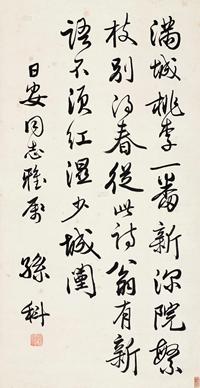 滿城桃李一番新深院繁
枝别得春從此詩翁有新
語不須紅濕少城闉
日安同志雅屬 孫科